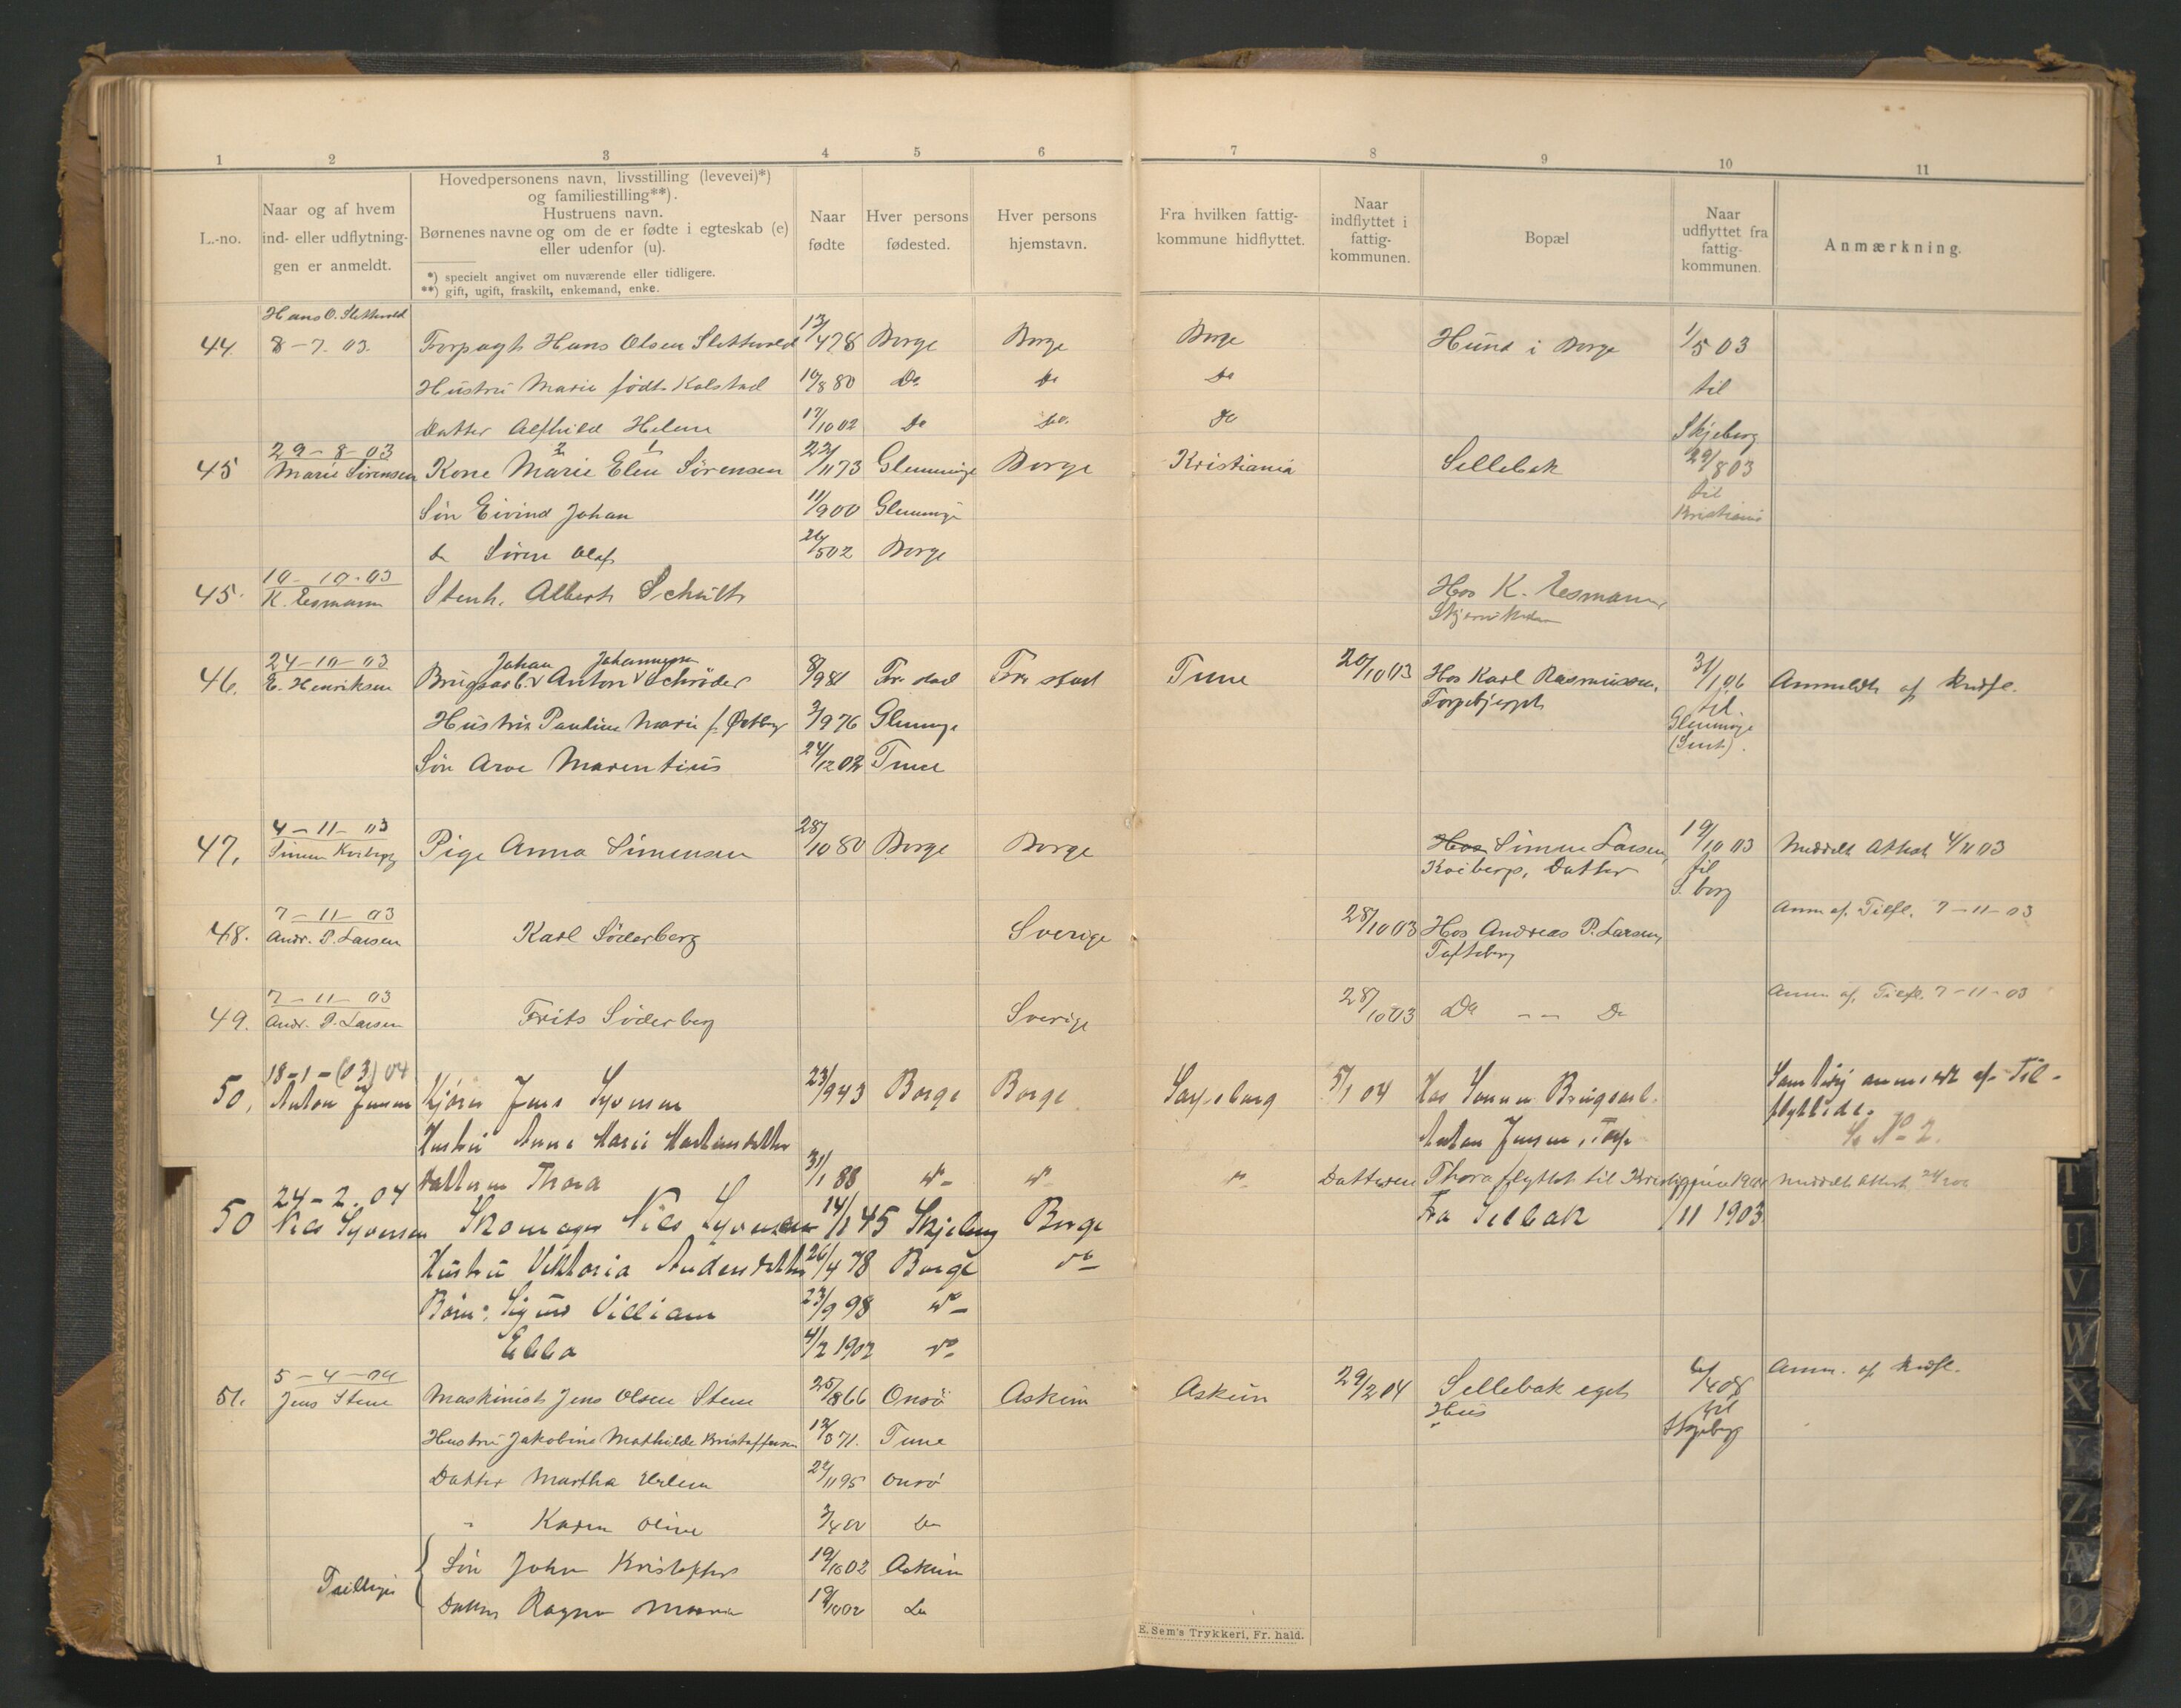 1 2 3 4 5 6 7 8 9 10 11
L.-no.
Naar og af hvem
ind- eller udflytnin-
gen er anmeldt.
Hovedpersonens navn, livsstilling (levevei)*)
og familiestilling**).
Hustruens navn.
Børnenes navne og om de er fødte i egteskab (e)
eller udenfor (u).
*) specielt angivet om nuværende eller tidligere.
**) gift, ugift, fraskilt, enkemand, enke.
Naar
fødte
Hver persons
fødested.
Hver persons
hjemstavn.
Fra hvilken fattig-
kommune hidflyttet.
Naar
indflyttet i
fattig-
kommunen.
Bopæl
Naar
udflyttet fra
fattig-
kommunen.
Anmærkning.
Hans O. Slettevold
44. 8-7. 03. Forpagt. Hans Olsen Slettevold 13/4 78 Borge Borge Borge Hund i Borge 1/5 03
Hustru Marie født Kolstad 10/8 80 Do Do Do til
Datter Alfhild Helene 17/10 02 Do Do. Do Skjeberg
29-8-03 2 1
45 Marie Sørensen Kone Marie Elen Sørensen 22/11 73 Glemminge Borge Kristiania Sellebak 29/8 03
til
Søn Eivind Johan 11/9 00 Glemminge Kristiania
do Søren Olaf 26/5 02 Borge
10-10-03
45. K. Esmann Stenh. Albert Schult Hos K. Esmann,
24-10-03 Johan Johannessen
46. E. Henriksen Brugsarb. Anton Schrøder 8/9 81 Fr. stad Fr. stad Tune 20/10 03 Hos Karl Rasmussen, 31/1 06 Anmeldt af Indfl.
Torpebjerget til
Hustru Pauline Marie f. Østby 3/9 76 Glemminge Glemminge
Søn Arve Marentius 24/12 02 Tune
4-11-03
47. Simen Kviberg Pige Anna Simensen 28/10 80 Borge Borge Hos Simen Larsen, 19/10 03 Meddelt Attest 4/11 03
Kviberg, Datter til
S. borg
7-11-03 Anm af Tilfl. 7-11-03
48. Andr. P. Larsen Karl Söderberg Sverige 28/10 03 Hos Andreas P. Larsen,
Tofteberg
7-11-03 Anm. af Tilfl. 7-11-03
49. Andr. P. Larsen Frits Söderberg Sverige 28/10 03 Do -- Do
18-1-(03) 04
50. Anton Jensen Kjører Jens Syversen 23/9 43 Borge Borge Sarpsborg 5/1 04 Hos Sønnen Brugsarb. Samtidig anmeldt af Til-
flyttede.
Hustru Anne Marie Martinsdatter Anton Jensen, Torp № 2.
Datteren Thora 31/1 88 do do do Datteren Thora flyttet til Meddelt Attest
24-2.04
50 Nils Syversen Skomager Nils Syversen 14/1 45 Skjeberg Borge Fra Selbak /11 1903
Hustru Viktoria Andersdatter 26/4 78 Borge do
Børn: Sigurd Villiam 23/9 98 do
Ebba 4/2 1902 do
5-4-04
51. Jens Stene Maskinist Jens Olsen Stene 25/8 66 Onsö Askim Askim 29/2 04 Sellebak eget 6/4 08 Anm. af Indfl.
Hus til
Skjeberg
Hustru Jakobine Mathilde Kristoffersen 12/3 71. Tune
Datter Martha Helene 22/11 95 Onsö
" Karen Oline 3/4 00 Do
Tvillinger Søn John Kristoffer 19/10 02 Askim
Datter Ragna Maria 19/10 02 Do
E. Sem's Trykkeri, Fr. hald.
T
U
V
W
X
Y
Z
Æ
Ø